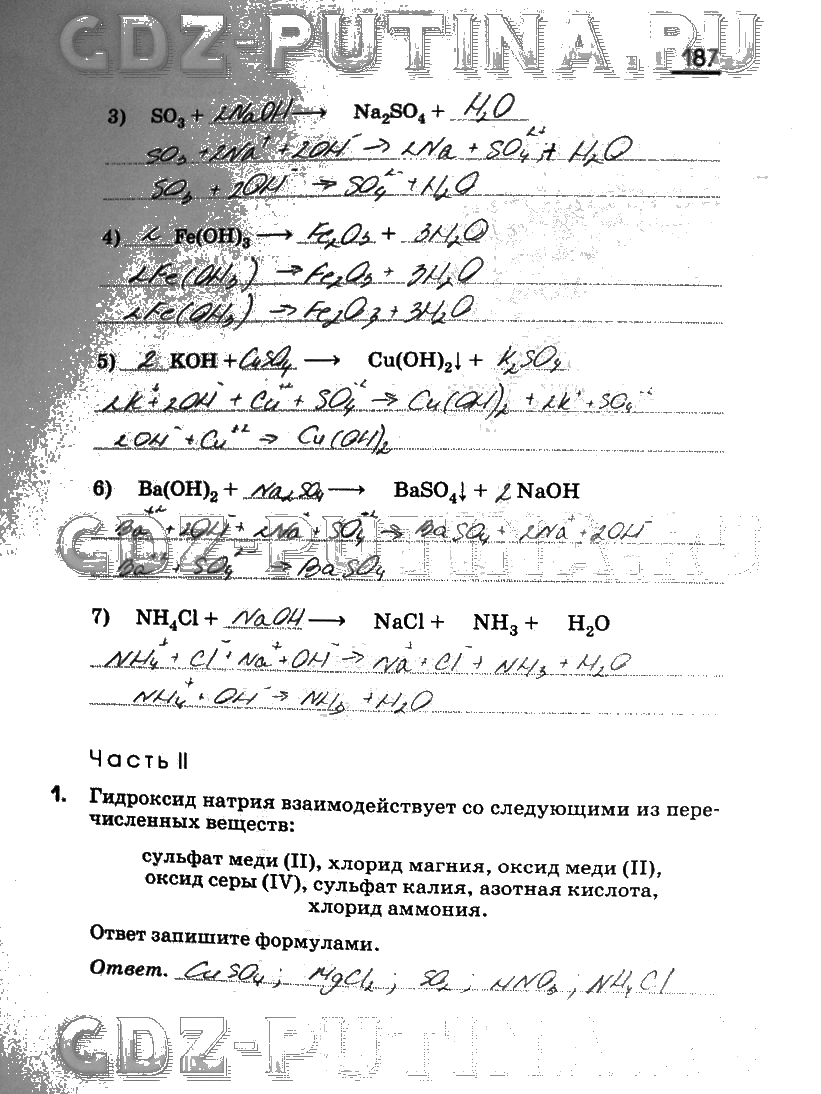 GDZ-PUTINA.RU
187
3) SO₃ + 2NaOH → Na₂SO₄ + H₂O
SO₃ + 2Na⁺ + 2OH⁻ → 2Na + SO₄²⁻ + H₂O
SO₃ + 2OH⁻ → SO₄²⁻ + H₂O
4) 2 Fe(OH)₃ → Fe₂O₃ + 3H₂O
2Fe(OH₃) → Fe₂O₃ + 3H₂O
2Fe(OH₃) → Fe₂O₃ + 3H₂O
5) 2 KOH + CuSO₄ → Cu(OH)₂↓ + K₂SO₄
2K⁺ + 2OH⁻ + Cu⁺² + SO₄⁻² → Cu(OH)₂ + 2K⁺ + SO₄⁻²
2OH⁻ + Cu⁺² → Cu(OH)₂
6) Ba(OH)₂ + Na₂SO₄ → BaSO₄↓ + 2 NaOH
Ba⁺² + 2OH⁻ + 2Na⁺ + SO₄⁻² → BaSO₄ + 2Na⁺ + 2OH⁻
Ba⁺² + SO₄⁻² → BaSO₄
GDZ-PUTINA.RU
7) NH₄Cl + NaOH → NaCl + NH₃ + H₂O
NH₄⁺ + Cl⁻ + Na⁺ + OH⁻ → Na⁺ + Cl⁻ + NH₃ + H₂O
NH₄⁺ + OH⁻ → NH₃ + H₂O
Часть II
1. Гидроксид натрия взаимодействует со следующими из пере-
численных веществ:
сульфат меди (II), хлорид магния, оксид меди (II),
оксид серы (IV), сульфат калия, азотная кислота,
хлорид аммония.
Ответ запишите формулами.
Ответ. CuSO₄; MgCl₂; SO₂; HNO₃; NH₄Cl
GDZ-PUTINA.RU